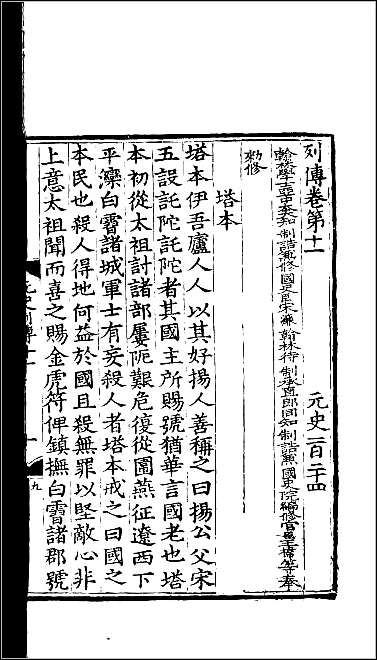 列傳卷第十一
元史一百二十四
翰林學士亞中大夫知制誥兼修國史臣宋濂翰林待制承直郎同知制誥兼國史院編修官臣王禕等奉
勑修
塔本
塔本伊吾廬人人以其好揚人善稱之曰揚公父宋
五設託陀託陀者其國主所賜號猶華言國老也塔
本初從太祖討諸部屢阨艱危復從圍燕征遼西下
平灤白霫諸城軍士有妄殺人者塔本戒之曰國之
本民也殺人得地何益於國且殺無罪以堅敵心非
上意太祖聞而喜之賜金虎符俾鎮撫白霫諸郡號
元史列傳十一
一
九